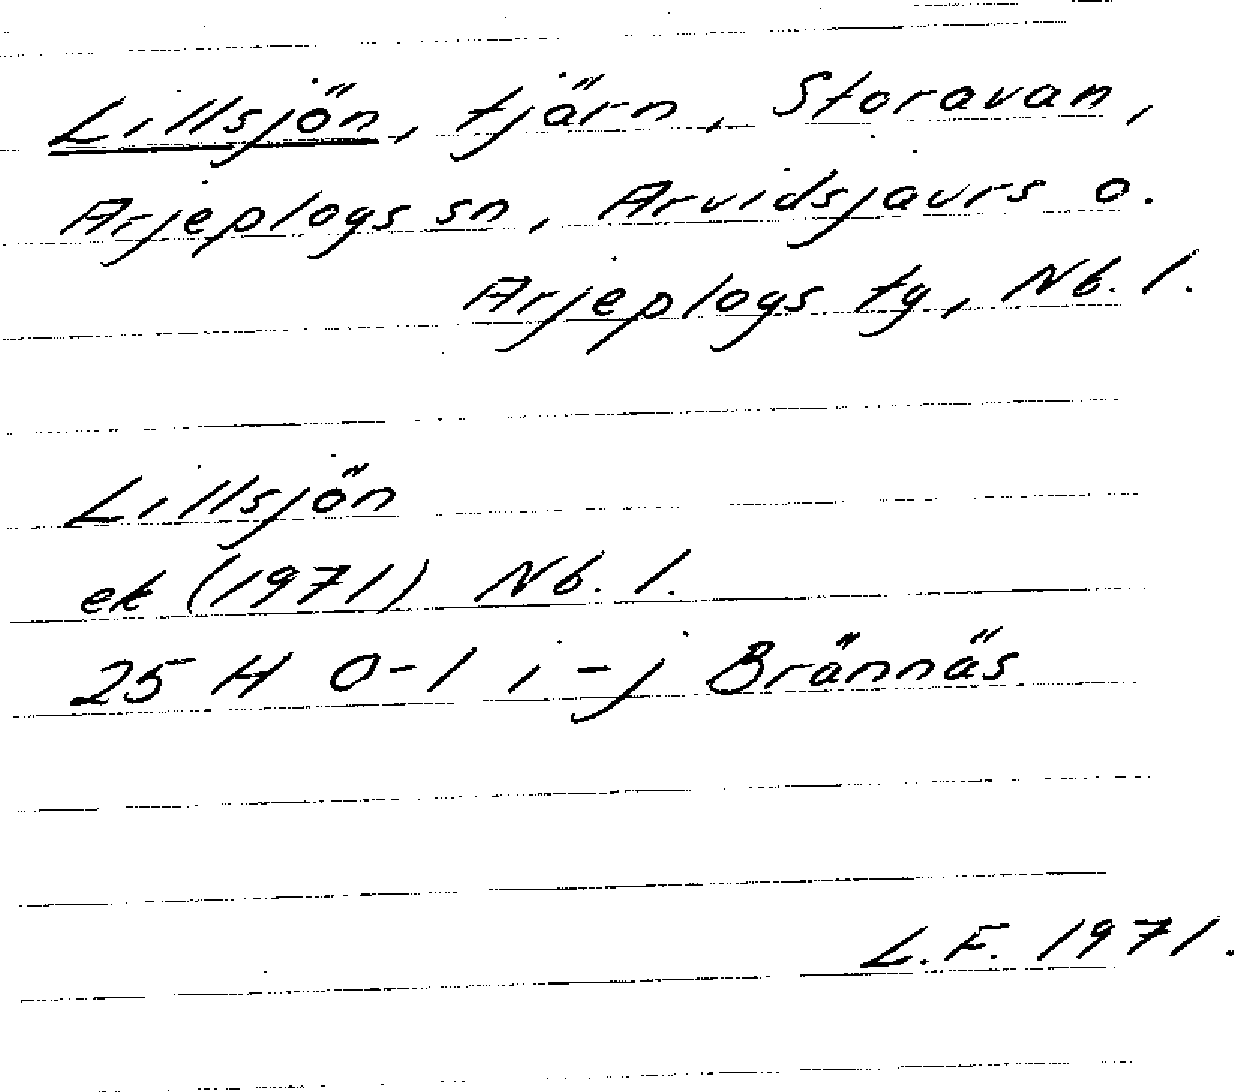 Lillsjön, tjärn, Storavan,
Arjeplogs sn, Arvidsjaurs o.
Arjeplogs tg, Nb. l.
Lillsjön
ek (1971) Nb. l.
25 H 0-1 i-j Brännäs
L.F. 1971.